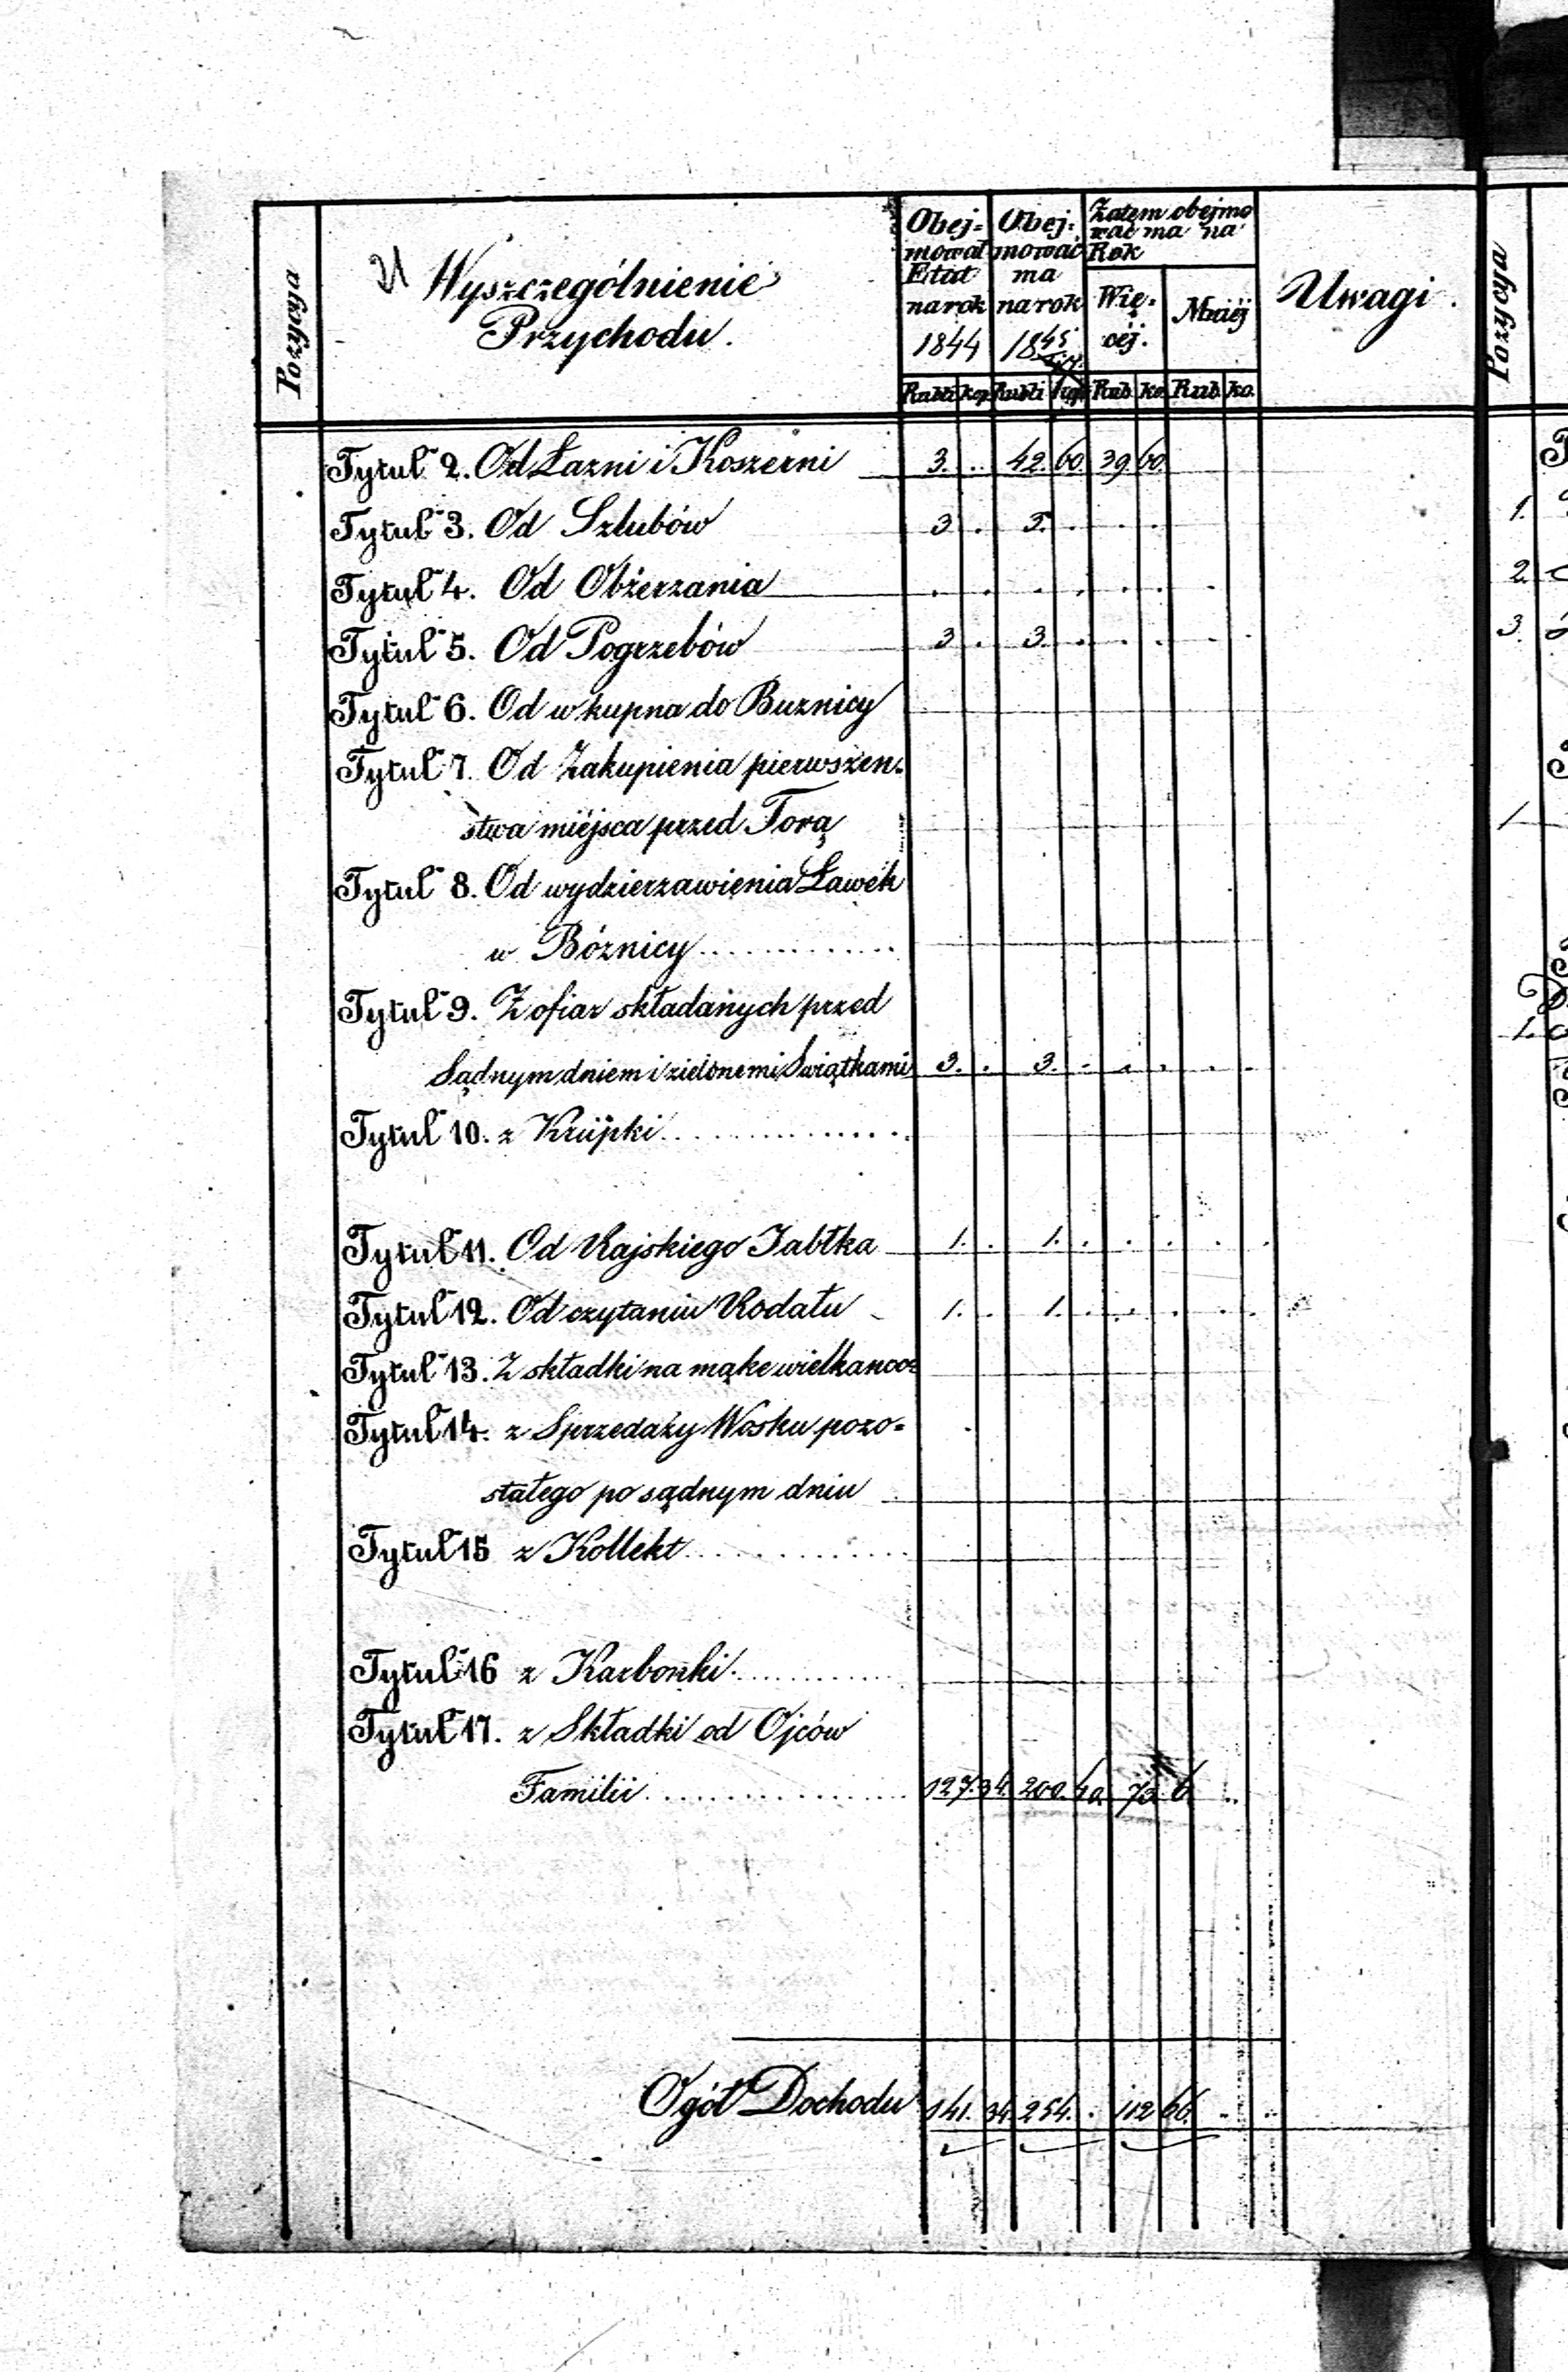 Pozycya
Wyszczególnienie
Przychodu.
Obej=
mował
Etat
na rok
1844
Obej=
mować
ma
na rok
1845
Zatem obejmo
wać ma na
Rok
Wię=
céj.
Mniéj
Uwagi.
Rubli kop. Rubli kop. Rub. ko. Rub. ko.
Tytuł 2. Od Łazni i Koszerni 3. .. 42. 60. 39 60.
Tytuł 3. Od Szlubów 3 . 3. . . .
Tytuł 4. Od Obżerzania . . . . . . .
Tytuł 5. Od Pogrzebów 3 . 3. . . . . .
Tytuł 6. Od wkupna do Buznicy
Tytuł 7. Od Zakupienia pierwszen=
stwa miéjsca przed Torą
Tytuł 8. Od wydzierzawienia Ławek
w Bóznicy
Tytuł 9. Z ofiar składanych przed
Sądnym dniem i zielonemi Swiątkami 3. . 3. . . . . .
Tytuł 10. z Krüpki
Tytuł 11. Od Rajskiego Jabłka 1. . 1. . . . . .
Tytuł 12. Od czytaniu Rodału 1. . 1. . . . . .
Tytuł 13. Z składki na mąke wielkanoc
Tytuł 14. z Sprzedaży Wosku pozo=
stałego po sądnym dniu
Tytuł 15 z Kollekt
Tytuł 16 z Karbonki
Tytuł 17. z Składki od Ojców
Familii 127. 34. 200. 40. 73. 6. ..
Ogół Dochodu 141. 34 254. . 112 66. . ..
Pozycya
1.
2.
3.
1
1.